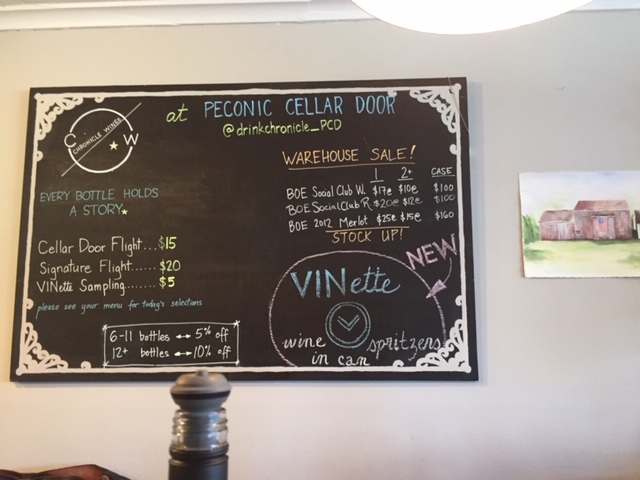 at PECONIC CELLAR DOOR
@drinkchronicle_PCD
C CHRONICLE WINES W
EVERY BOTTLE HOLDS
A STORY
Cellar Door Flight...$15
Signature Flight......$20
VINette Sampling.......$5
please see your menu for today's selections
6-11 bottles ↔ 5% off
12+ bottles ↔ 10% off
WAREHOUSE SALE!
1 2+ CASE
BOE Social Club W. $17e $10e $100
BOE Social Club R $20e $12e $100
BOE 2012 Merlot $25e $15e $160
STOCK UP!
NEW
VINette
wine spritzers
in can